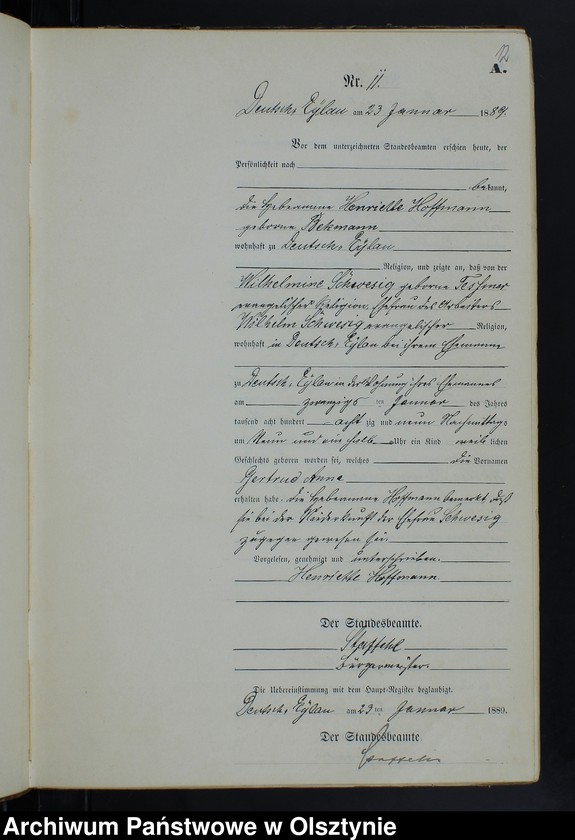 12
A.
Nr. 11.
Deutsch Eylau am 23 Januar 1889.
Vor dem unterzeichneten Standesbeamten erschien heute, der
Persönlichkeit nach
bekannt,
die Hebeamme Henriette Hoffmann
geborne Bekmann
wohnhaft zu Deutsch Eylau
Religion, und zeigte an, daß von der
Wilhelmine Schwesig geborne Teßmer
evangelischer Religion, Ehefrau des Arbeiters
Wilhelm Schwesig evangelischer Religion,
wohnhaft in Deutsch Eylau bei ihrem Ehemanne
zu Deutsch Eylau in der Wohnung ihres Ehemannes
am zwanzigsten Januar des Jahres
tausend acht hundert acht zig und neun Nachmittags
um Neun und ein halb Uhr ein Kind weib lichen
Geschlechts geboren worden sei, welches die Vornamen
Gertrud Anna
erhalten habe. die Hebeamme Hoffmann bemerkt, daß
sie bei der Niederkunft der Ehefrau Schwesig
zugegen gewesen sei.
Vorgelesen, genehmigt und unterschrieben.
Henriette Hoffmann
Der Standesbeamte.
Staffehl
Bürgermeister.
Die Uebereinstimmung mit dem Haupt-Register beglaubigt.
Deutsch Eylau am 23ten Januar 1889.
Der Standesbeamte
Staffehl
Archiwum Państwowe w Olsztynie